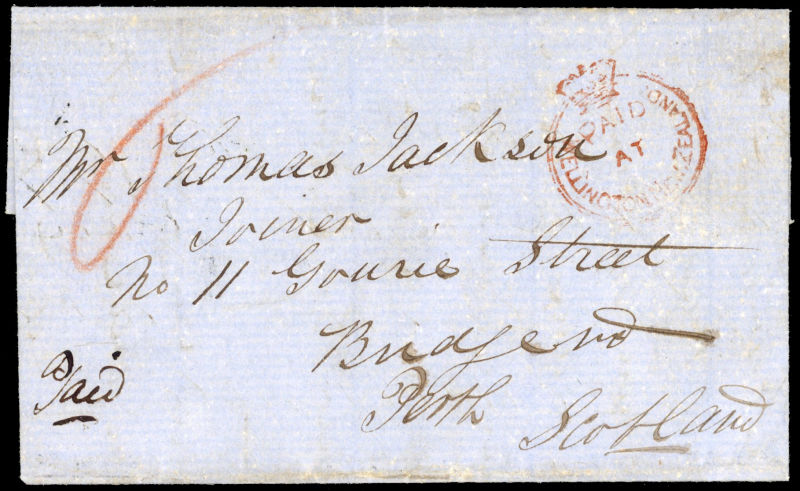 PAID
AT
WELLINGTON NEW ZEALAND
Mr Thomas Jackson
Joiner
No 11 Gourie Street
Bridgend
Paid
Perth
Scotland